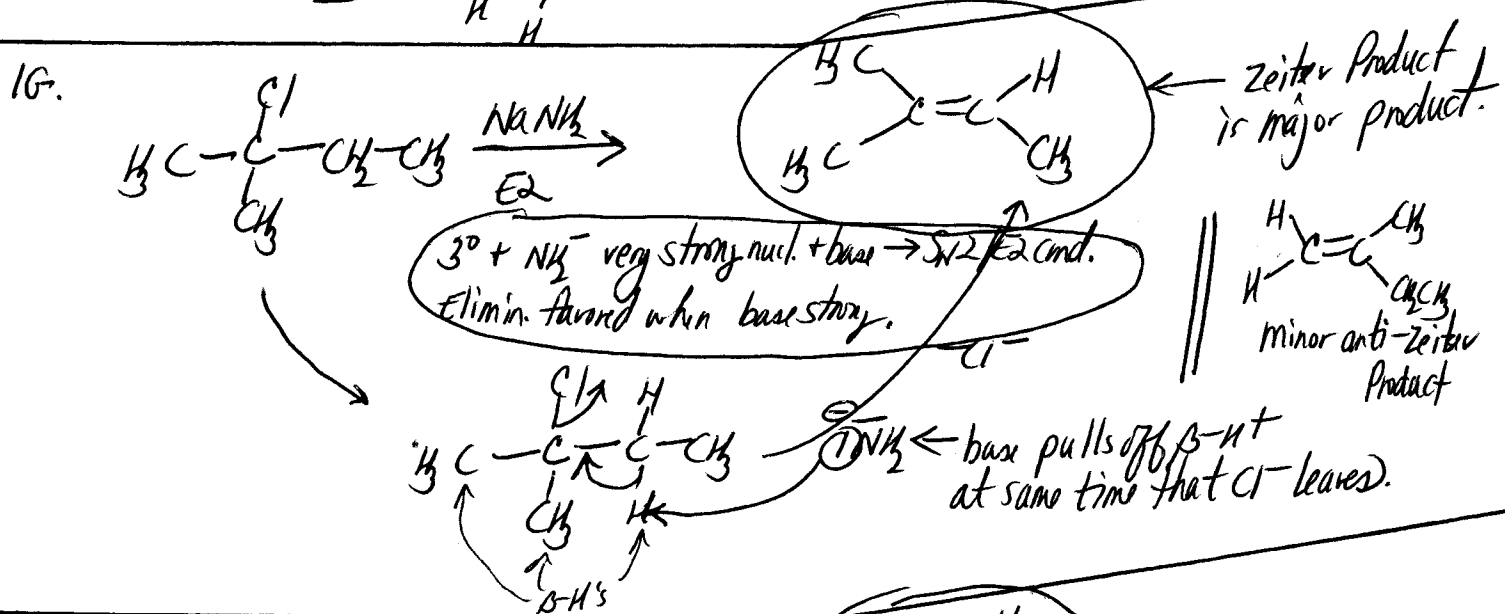 H
H
1G.
Cl
H3C—C—CH2—CH3
CH3
NaNH2
E2
H3C
H
C=C
H3C
CH3
Zeitev Product
is major product.
3° + NH2⁻ very strong nucl. + base → SN2/E2 cond.
Elimin. favored when base strong.
H
CH3
C=C
H
CH2CH3
minor anti-Zeitev
Product
-Cl⁻
Cl
H
H3C—C—C—CH3
CH3
H
NH2 ← base pulls off β-H+
at same time that Cl⁻ leaves.
β-H's